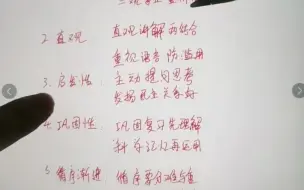 2. 直观 直观讲解要结合
重视语言防滥用
3. 启发性 主动提问思考
发扬民主关系好
4. 巩固性 巩固复习先理解
科学记忆再运用
5. 循序渐进 循序